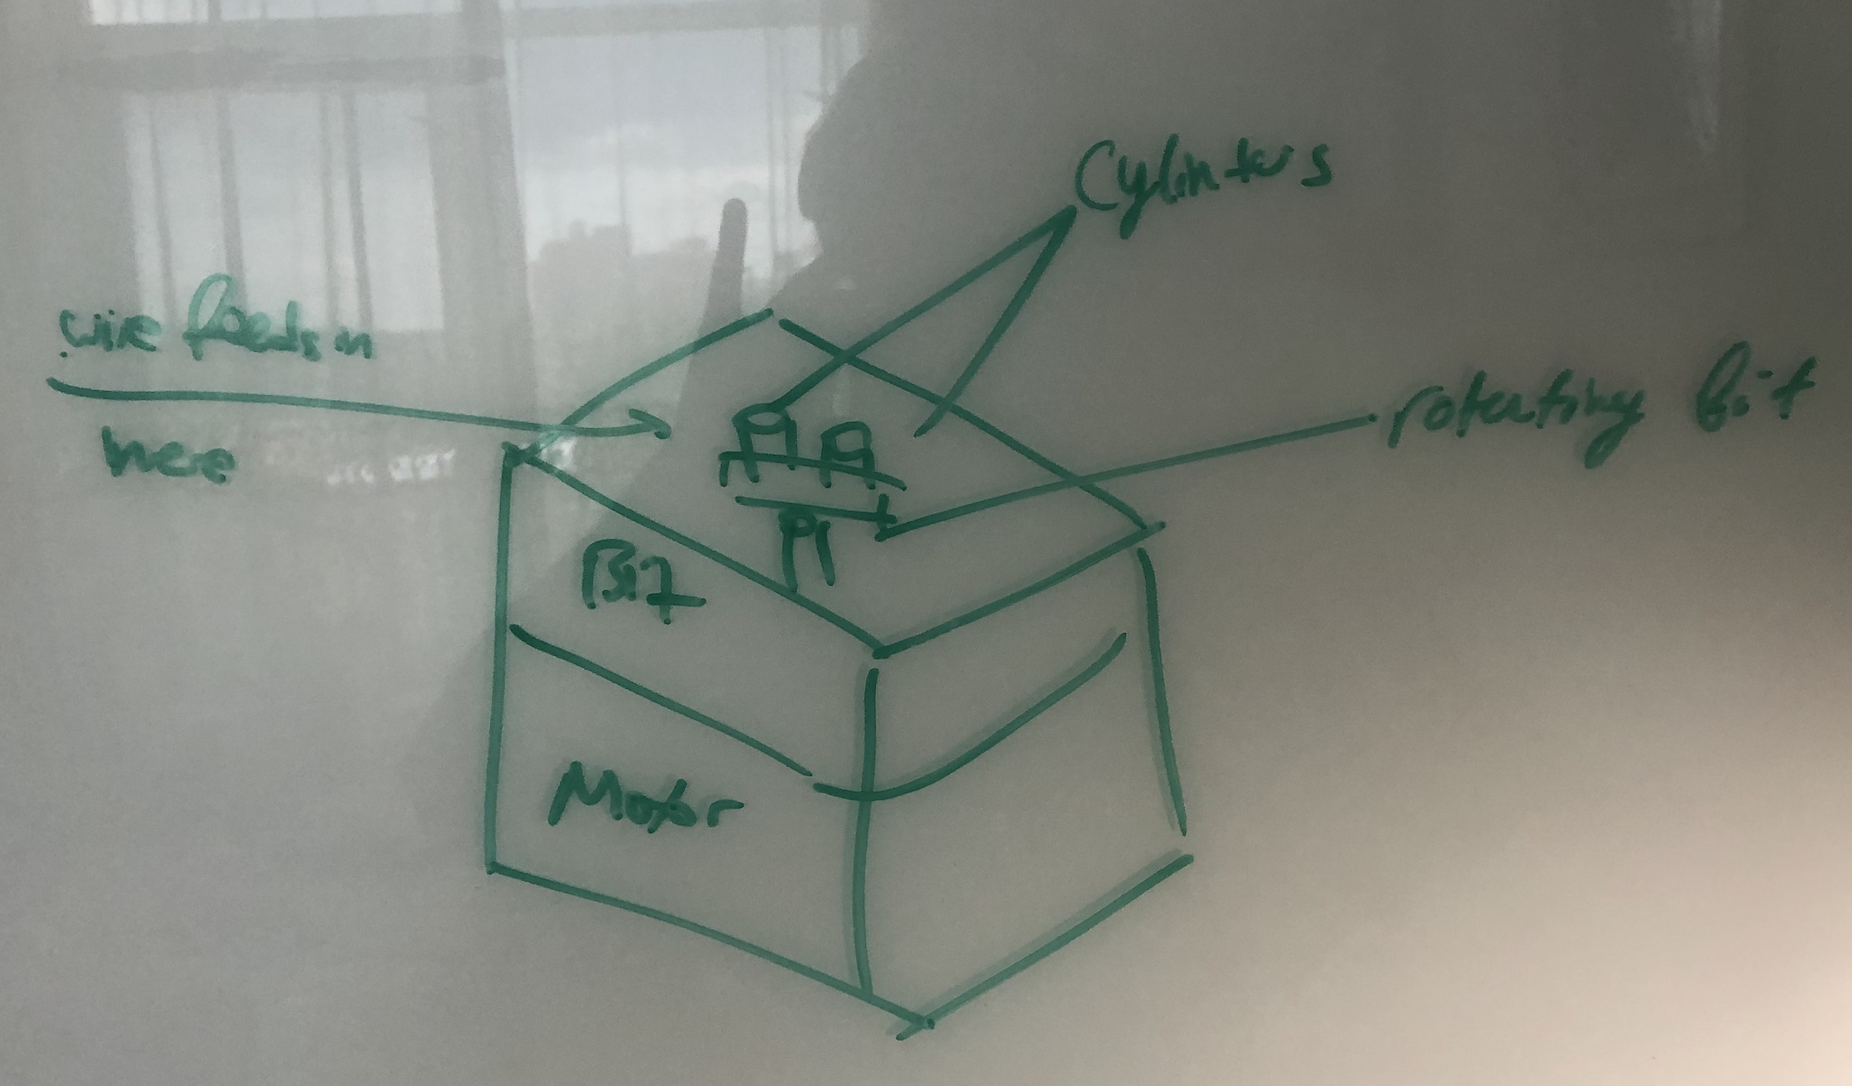 Cylinters
wire feeds in
here
rotating bit
Bit
Motor